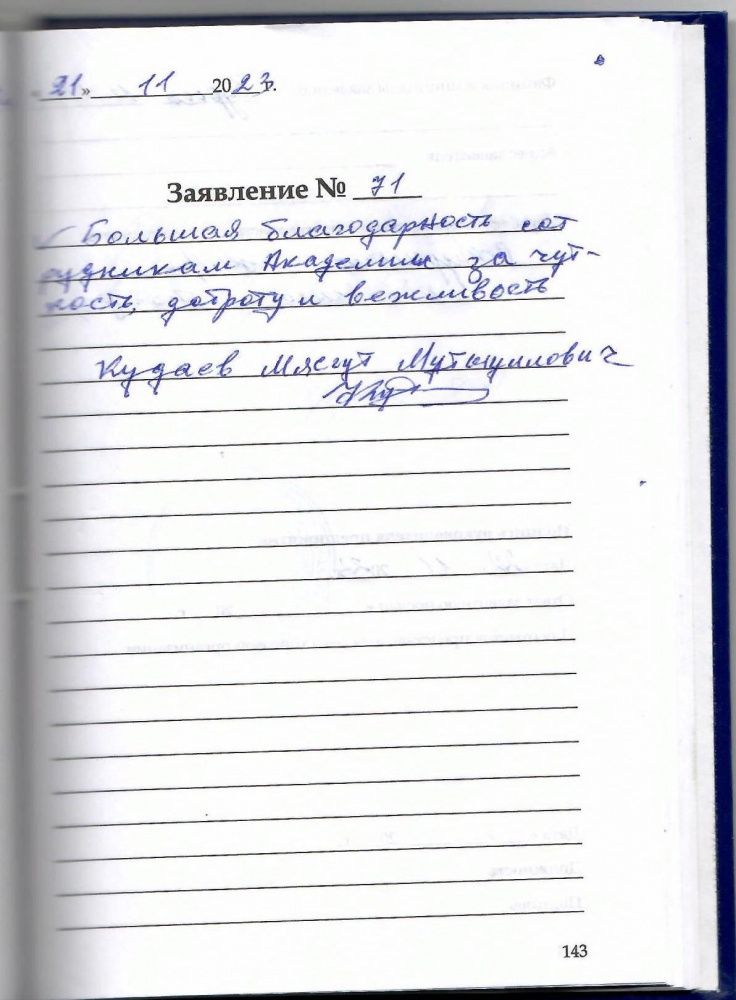 «21» 11 2023 г.
Заявление № 71
Большая благодарность сот
рудникам Академии за чут-
кость, доброту и вежливость
Кудаев Мясгут Мутыуллович
143